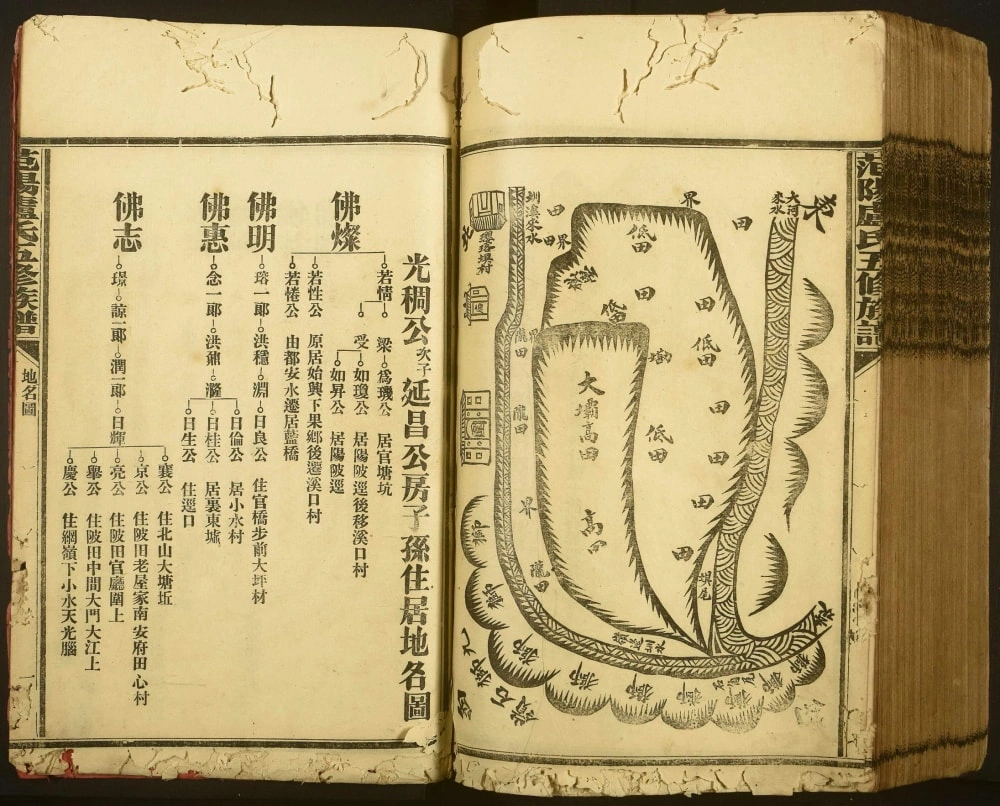 范陽盧氏五修族譜
東
大河來水
田
界
低田
田
界
田
圳溪來水
北
田
低田
大壩高田
低田
田
田
高田
田
田
壩尾
隴田
隴田
界
隴田
獅
獅
獅
獅
獅
獅
獅
光稠公次子延昌公房子孫住居地名圖
佛燦
若情
梁 為璣公 居官塘坑
受 如瓊公 居陽陂逕後移溪口村
如昇公 居陽陂逕
若性公 原居始興下果鄉後遷溪口村
若惓公 由都安水遷居藍橋
佛明
瑢一郎 洪穩 淵 日良公 住官橋步前大坪材
佛惠
念一郎 洪鼐 瀠
日倫公 居小水村
日桂公 居裏東墟
日生公 住逕口
佛志
璟 諒一郎 潤一郎 日輝
襄公 住北山大塘坵
京公 住陂田老屋家南安府田心村
亮公 住陂田官廳圍上
舉公 住陂田中間大門大江上
慶公 住綱嶺下小水天光腦
范陽盧氏五修族譜
地名圖